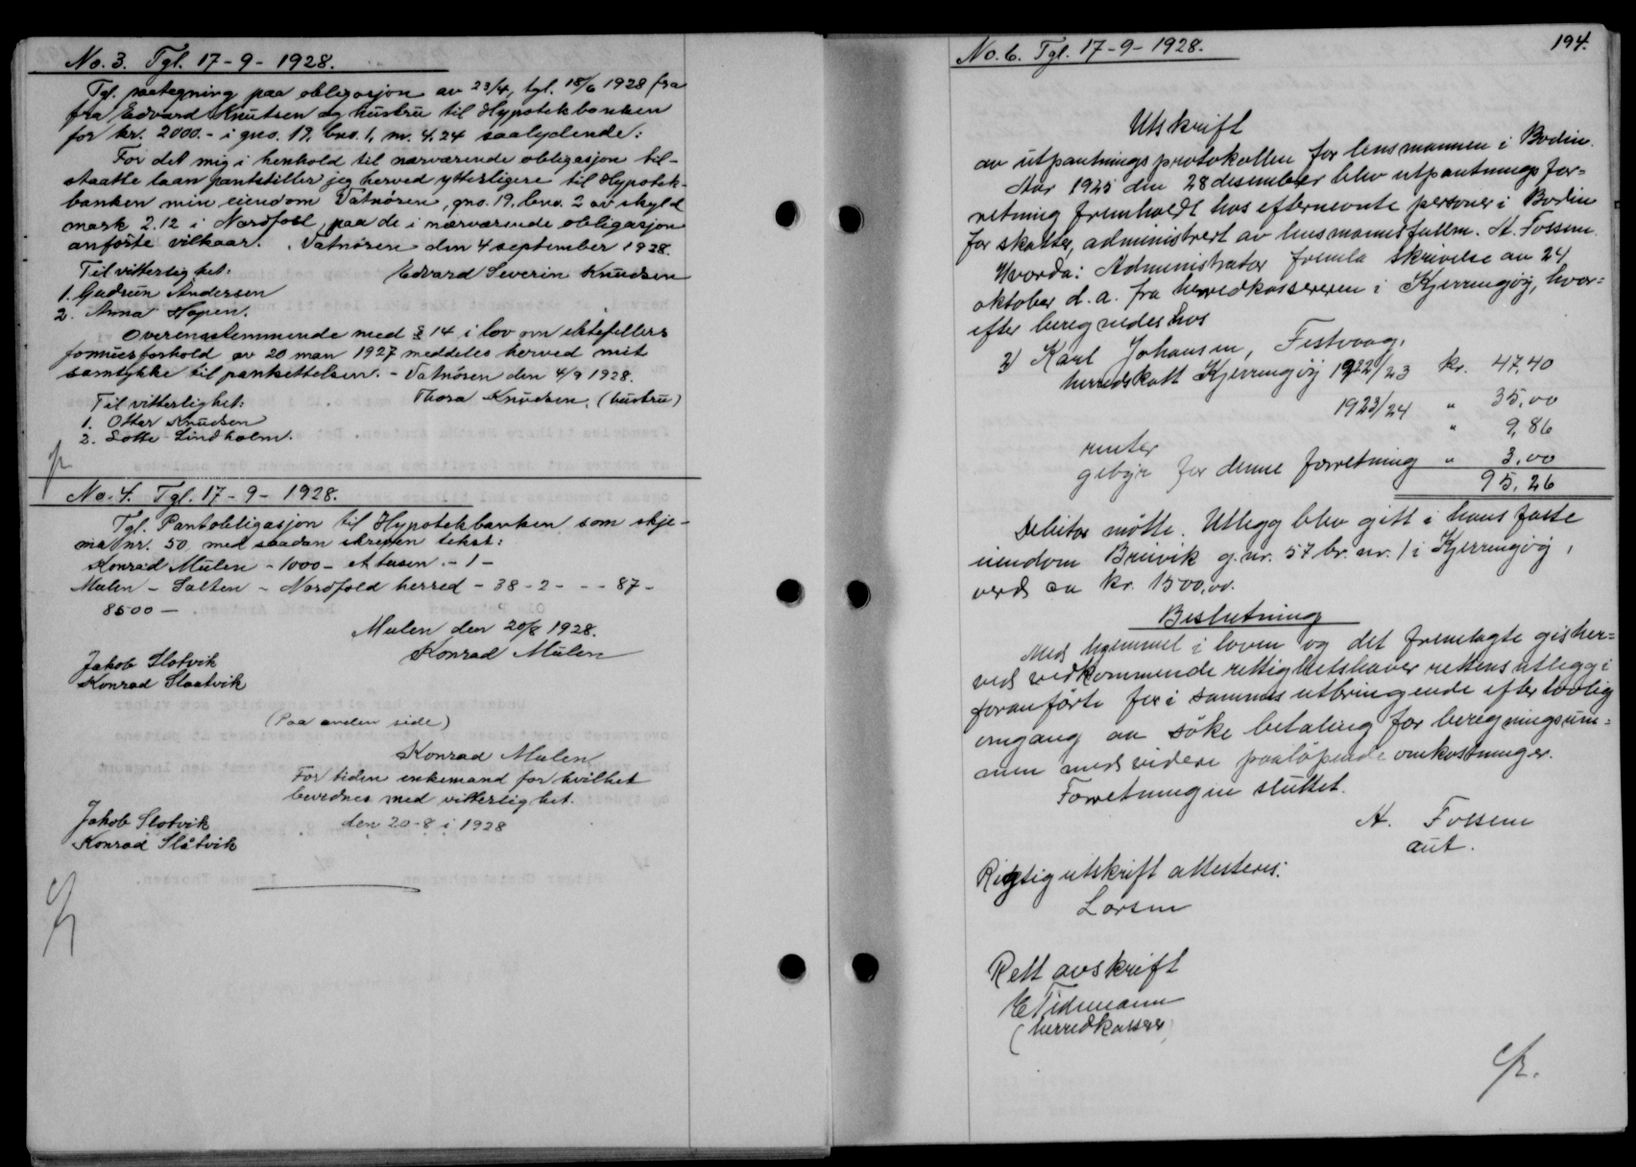 No. 3. Tgl. 17-9-1928.
Tgl. paategning paa obligasjon av 23/4, tgl. 18/6 1928 fra
fra Edvard Knutsen og hustru til Hypotekbanken
for kr. 2000.- i gno. 19, bno. 1, m. 4.24 saalydende:
For det mig i henhold til nærværende obligasjon til-
staatte laan pantstiller jeg herved ytterligere til Hypotek-
banken min eiendom Vatnøren, gno. 19, bno. 2 av skyld
mark 2.12 i Nordfold, paa de i nærværende obligasjon
anførte vilkaar. Vatnøren den 4 september 1928.
Til vitterlighet: Edvard Severin Knudsen
1. Gudrun Andersen
2. Anna Hopen.
Overensstemmende med § 14 i lov om ektefellers
formuesforhold av 20 mars 1927 meddeles herved mit
samtykke til pantsettelsen. - Vatnøren den 4/9 1928.
Til vitterlighet: Thora Knudsen. (hustru)
1. Ottar Knudsen
2. Lotte Lindholm.
No. 4. Tgl. 17-9-1928.
Tgl. Pantobligasjon til Hypotekbanken som skje-
ma nr. 50 med saadan skreven tekst:
Konrad Mulen - 1000 - et tusen. - 1 -
Mulen - Salten - Nordfold herred - 38 - 2 - - - 87 -
8500 -
Mulen den 20/8 1928.
Konrad Mulen
Jakob Slotvik
Konrad Slaatvik
(Paa anden side)
Konrad Mulen
For tiden enkemand for hvilket
bevidnes med vitterlighet.
Jakob Slotvik den 20-8 i 1928
Konrad Slåtvik
No. 6. Tgl. 17-9-1928. 194.
Utskrift
av utpantningsprotokollen for lensmannen i Bodin.
Aar 1925 den 28 desember blev utpantningsfor=
retning fremholdt hos efternevnte personer i Bodin
for skatter, administrert av lensmannsfullm. A. Fossum.
Hvorda: Administrator fremla skrivelse av 24
oktober d. a. fra herredkassereren i Kjerringøy, hvor=
efter beregnedes hos
3) Karl Johansen, Festvaag.
herredskatt Kjerringøy 1922/23 kr. 47,40
1923/24 " 35,00
renter " 9,86
gebyr for denne forretning " 3,00
95,26
Debitor møtte. Utlegg blev gitt i hans faste
eiendom Breivik g. nr. 57 br. nr. 1 i Kjerringøy,
verd ca kr. 1500,00.
Beslutning
Med hjemmel i loven og det fremlagte gis her=
ved vedkommende rettighetshaver rettens utlegg i
foranførte for i sammes utbringende efter lovlig
omgang aa søke betaling for beregningssum=
men med videre paaløpende omkostninger.
Forretningen sluttet.
A. Fossum
aut.
Rigtig utskrift attesteres:
Larsen
Rett avskrift
E Tidemann
(herredkasserer)